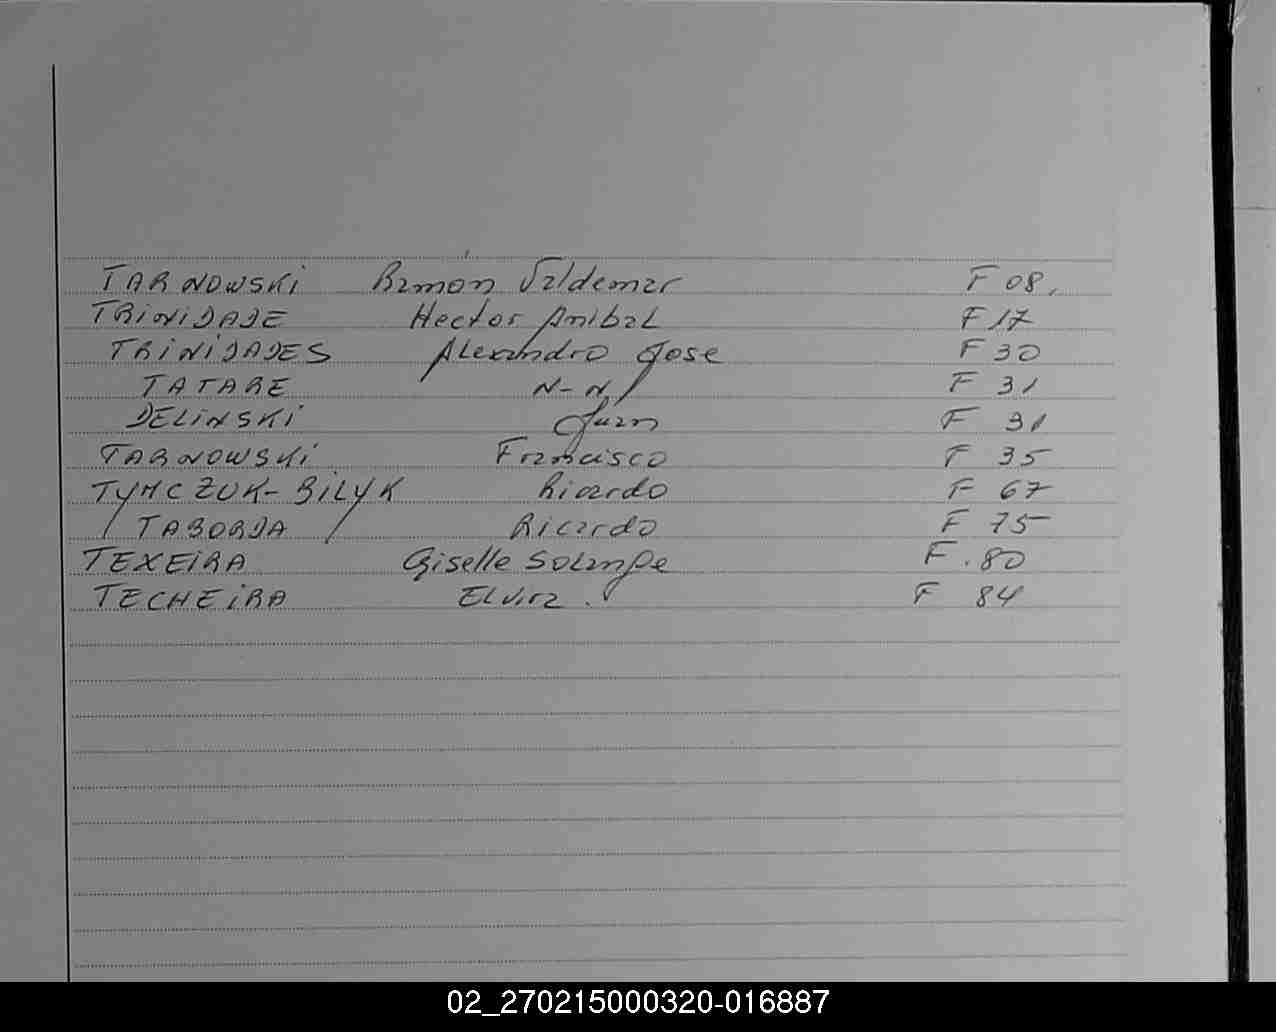 TARNOWSKI Ramón Valdemar F 08.
TRINIDADE Hector Anibal F 17
TRINIDADES Alexandro Jose F 30
TATARE N-N F 31
DELINSKI Juan F 31
TARNOWSKI Francisco F 35
TYMCZUK-BILYK Ricardo F 67
TABORDA Ricardo F 75
TEXEIRA Giselle Solange F.80
TECHEIRA Elvira. F 84
02_270215000320-016887